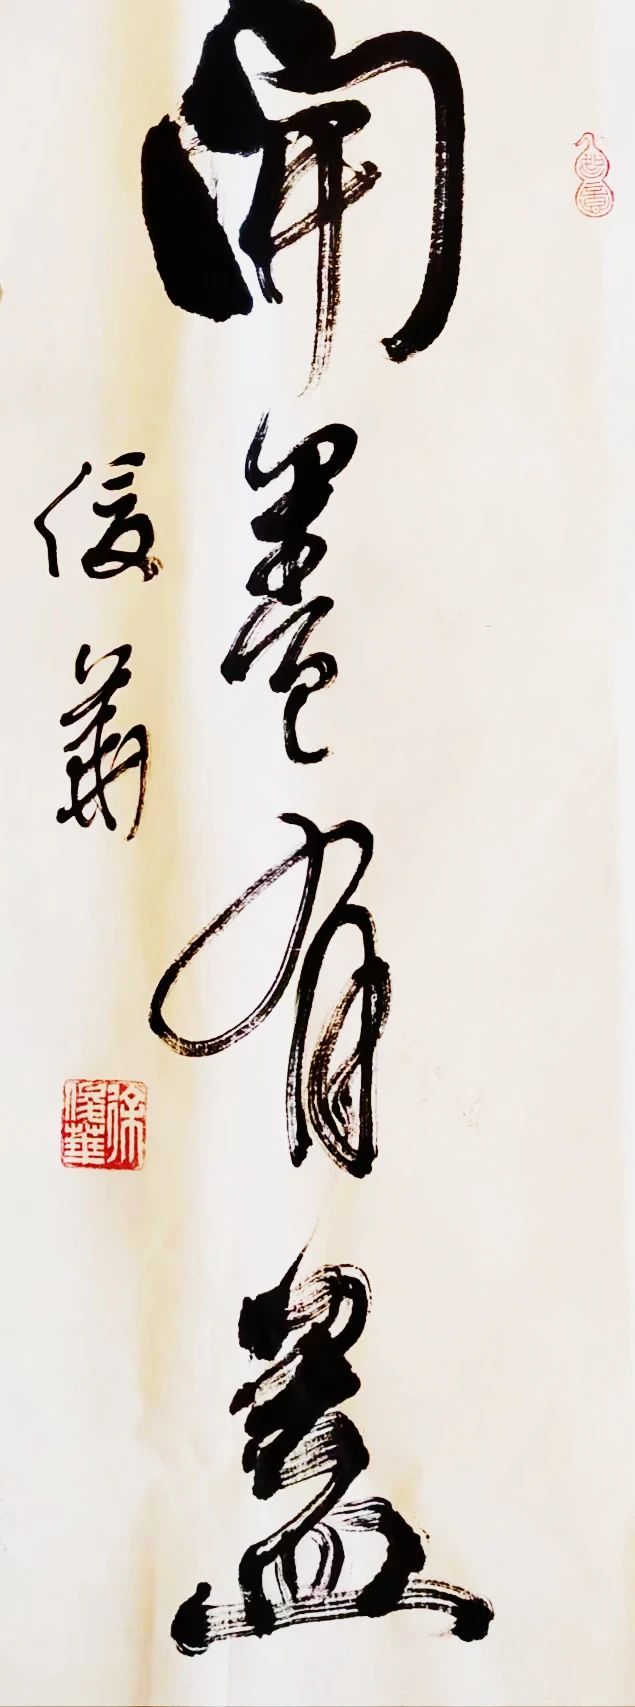 開卷有益
俊華
徐俊華